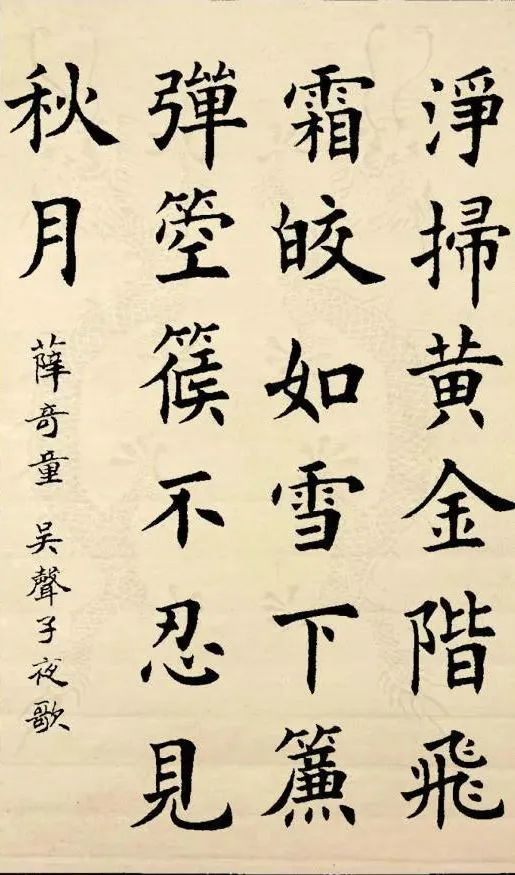 淨掃黃金階飛
霜皎如雪下簾
彈箜篌不忍見
秋月
薛奇童 吴聲子夜歌